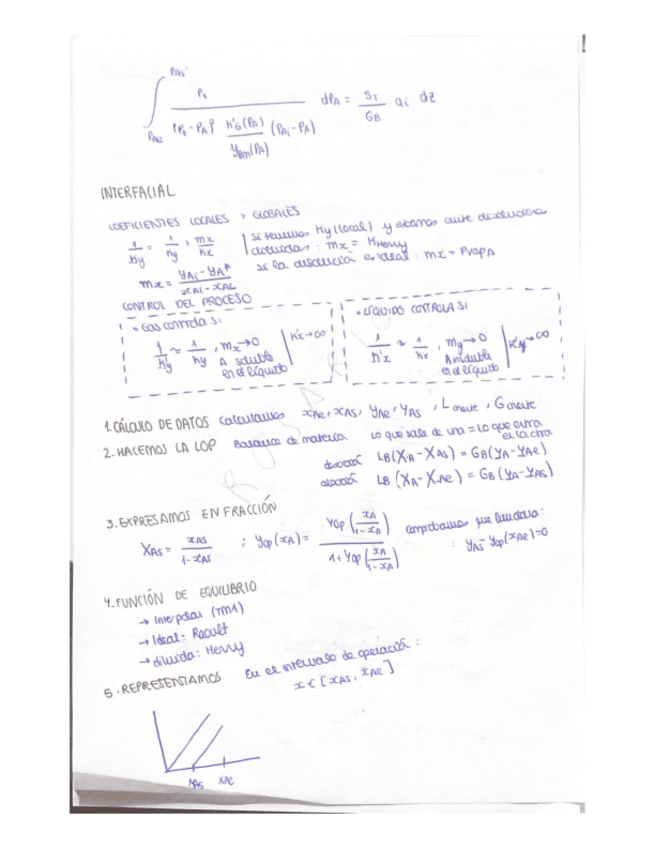 ∫ PAe PAs Pt / ((Pt - PA)² K'G(PA)/yBm(PA) (PAi - PA)) dPA = ST/GB · ai dz
INTERFACIAL
COEFICIENTES LOCALES Y GLOBALES
1/Ky = 1/ky + mx/kx
si tenemos Ky (local) y estamos ante disoluciones
diluidas: mx = KHenry
si la disolución es ideal: mx = PvapA
mx = (yAi - yA*)/(xAi - xAL)
CONTROL DEL PROCESO
• Gas controla si
1/Ky ≈ 1/ky , mx → 0 | K'x → ∞
A soluble
en el líquido
• LÍQUIDO CONTROLA SI
1/K'x ≈ 1/kx , my → 0 | K'y → ∞
A insoluble
en el líquido
1. CÁLCULO DE DATOS Calculamos xAe, xAs, yAe, yAs, L inerte, G inerte
2. HACEMOS LA LOP Balance de materia Lo que sale de una = Lo que entra
en la otra
LB (XA - XAs) = GB (YA - YAe)
LB (XA - XAe) = GB (YA - YAs)
3. EXPRESAMOS EN FRACCIÓN
XAs = xAs/(1 - xAs) ; yop(xA) = Yop(xA/(1 - xA)) / (1 + Yop(xA/(1 - xA)))
comprobamos que funciona:
: yAs - yop(xAe) = 0
4. FUNCIÓN DE EQUILIBRIO
→ Interpolar (TM1)
→ Ideal: Raoult
→ diluida: Henry
5. REPRESENTAMOS En el intervalo de operación:
x ∈ [xAs, xAe]
xAs xAe